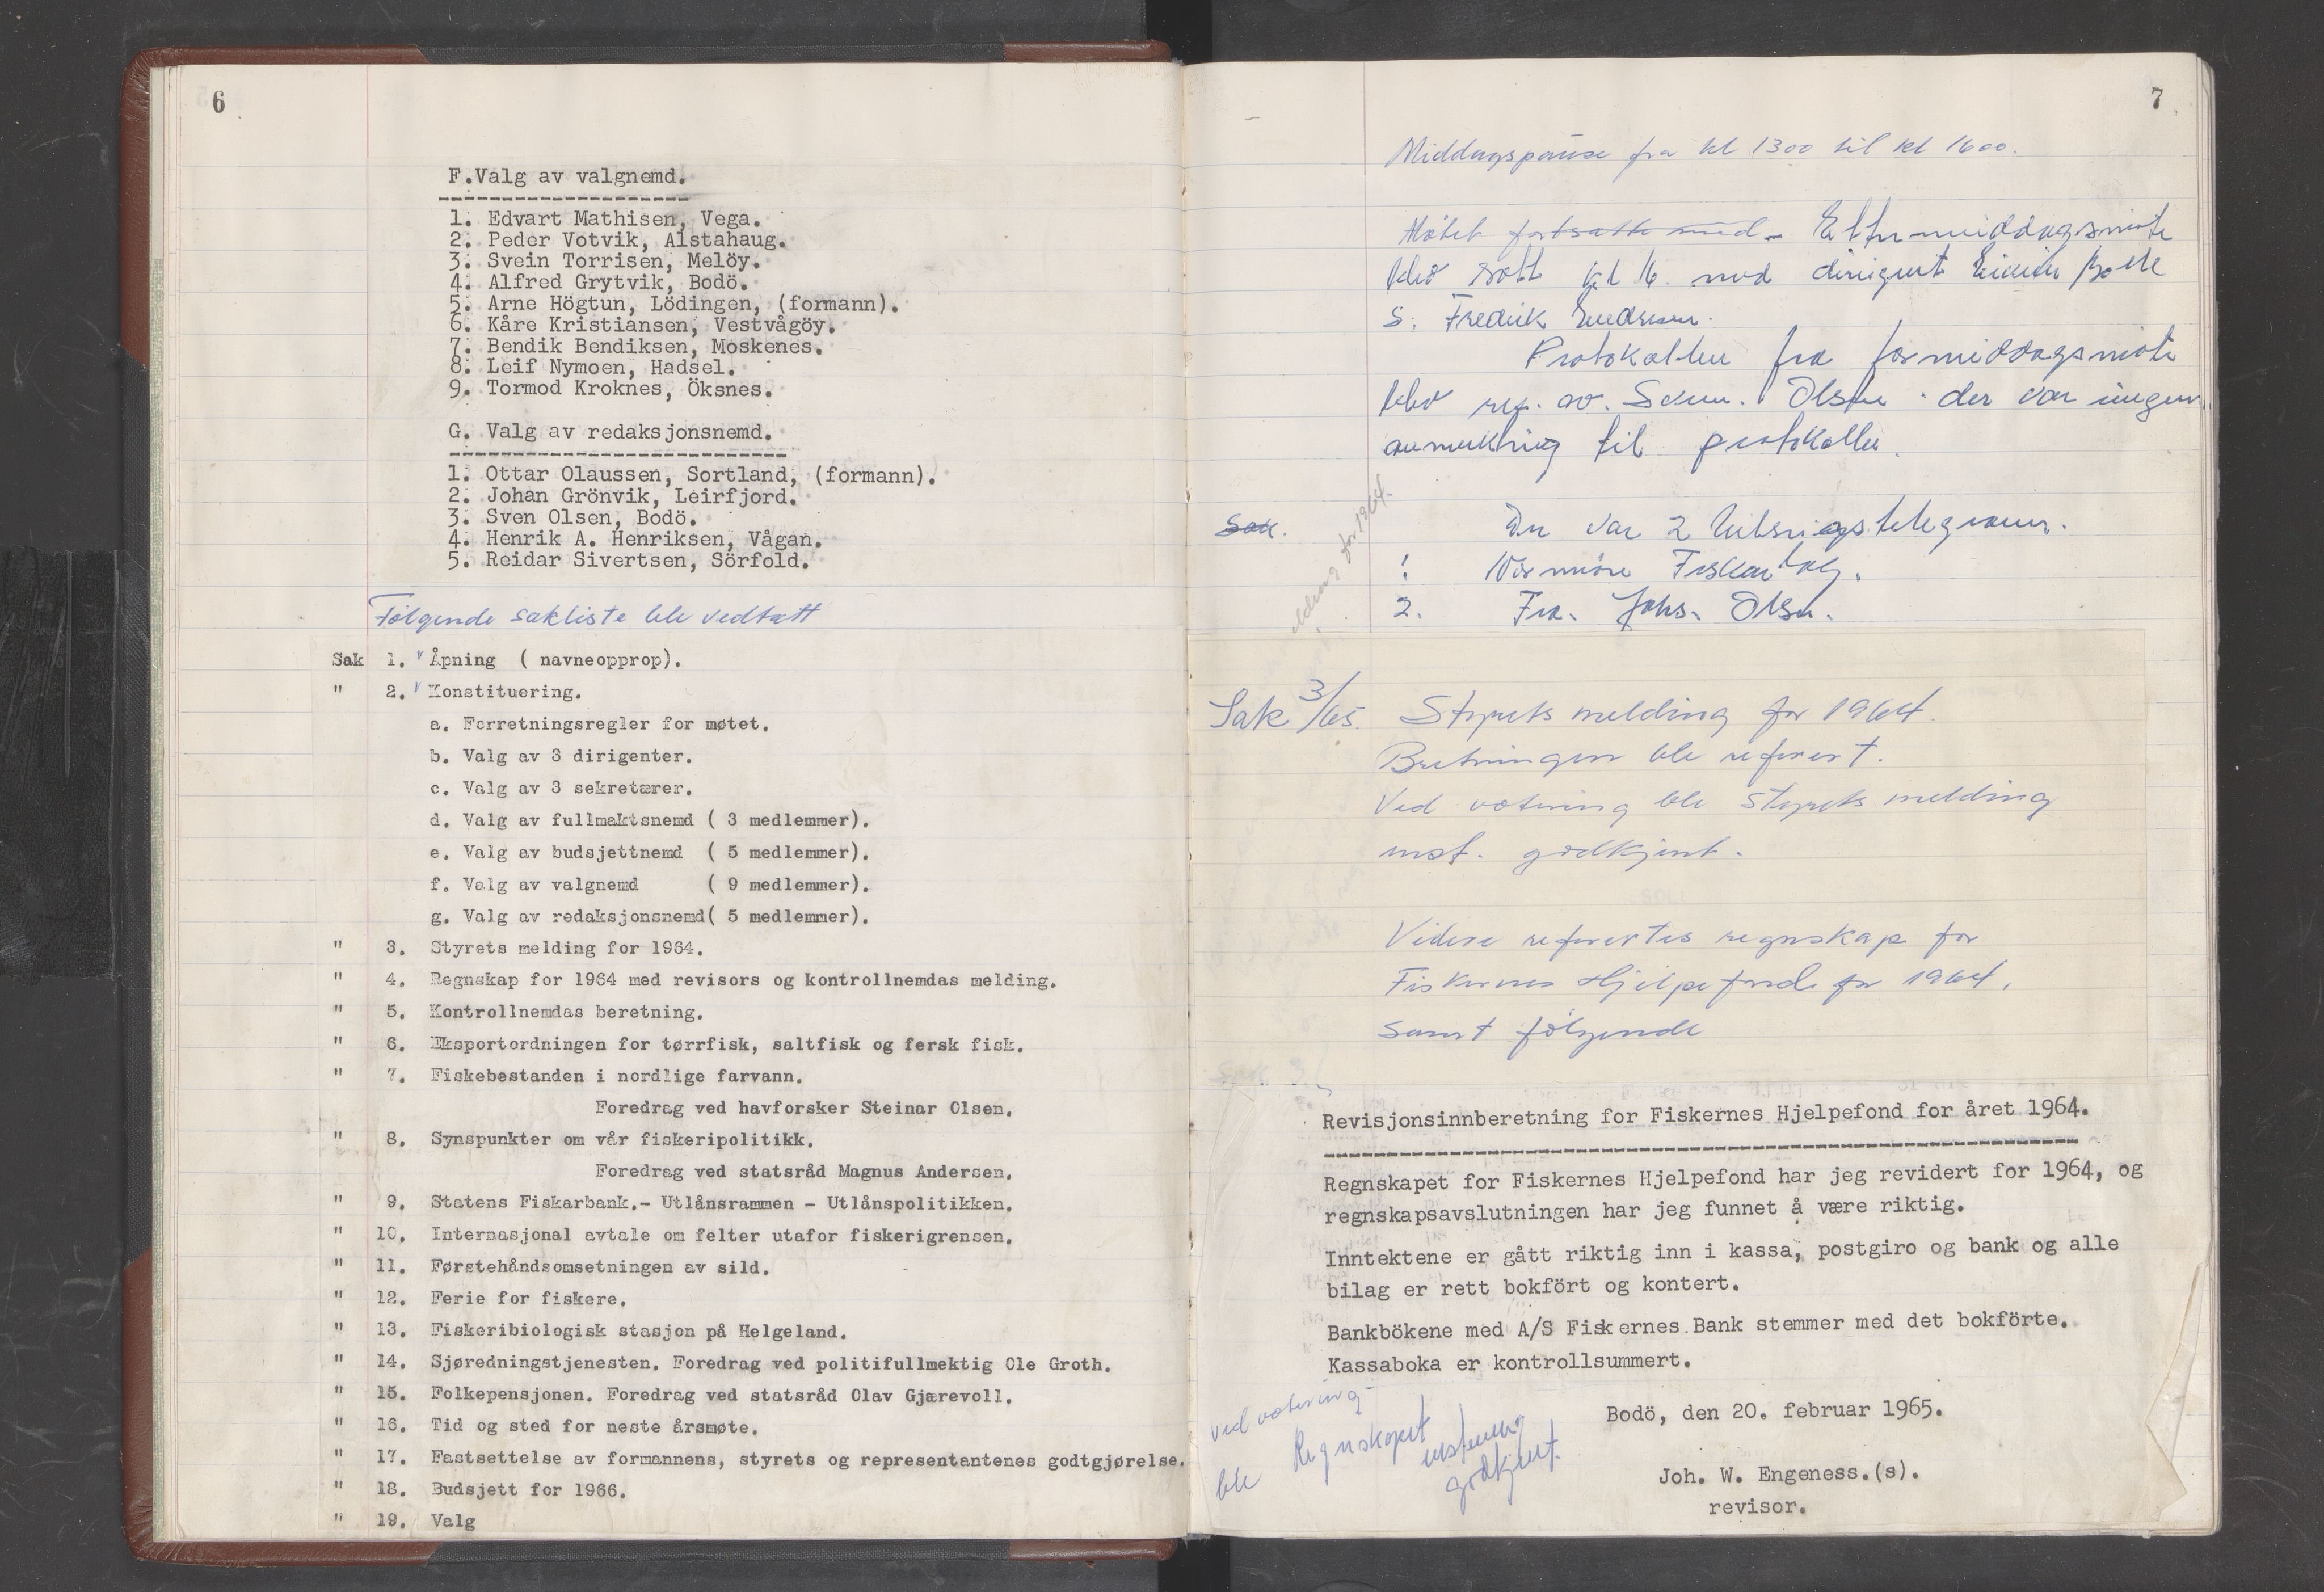 6
F.Valg av valgnemd.
1. Edvart Mathisen, Vega.
2. Peder Votvik, Alstahaug.
3. Svein Torrisen, Melöy.
4. Alfred Grytvik, Bodö.
5. Arne Högtun, Lödingen, (formann).
6. Kåre Kristiansen, Vestvågöy.
7. Bendik Bendiksen, Moskenes.
8. Leif Nymoen, Hadsel.
9. Tormod Kroknes, Öksnes.
G. Valg av redaksjonsnemd.
1. Ottar Olaussen, Sortland, (formann).
2. Johan Grönvik, Leirfjord.
3. Sven Olsen, Bodö.
4. Henrik A. Henriksen, Vågan.
5. Reidar Sivertsen, Sörfold.
Følgende sakliste ble vedtatt
Sak 1. Åpning ( navneopprop).
" 2. Konstituering.
a. Forretningsregler for møtet.
b. Valg av 3 dirigenter.
c. Valg av 3 sekretærer.
d. Valg av fullmaktsnemd ( 3 medlemmer).
e. Valg av budsjettnemd ( 5 medlemmer).
f. Valg av valgnemd ( 9 medlemmer).
g. Valg av redaksjonsnemd( 5 medlemmer).
" 3. Styrets melding for 1964.
" 4. Regnskap for 1964 med revisors og kontrollnemdas melding.
" 5. Kontrollnemdas beretning.
" 6. Eksportordningen for tørrfisk, saltfisk og fersk fisk.
" 7. Fiskebestanden i nordlige farvann.
Foredrag ved havforsker Steinar Olsen.
" 8. Synspunkter om vår fiskeripolitikk.
Foredrag ved statsråd Magnus Andersen.
" 9. Statens Fiskarbank.- Utlånsrammen - Utlånspolitikken.
" 10. Internasjonal avtale om felter utafor fiskerigrensen.
" 11. Førstehåndsomsetningen av sild.
" 12. Ferie for fiskere.
" 13. Fiskeribiologisk stasjon på Helgeland.
" 14. Sjøredningstjenesten. Foredrag ved politifullmektig Ole Groth.
" 15. Folkepensjonen. Foredrag ved statsråd Olav Gjærevoll.
" 16. Tid og sted for neste årsmøte.
" 17. Fastsettelse av formannens, styrets og representantenes godtgjørelse.
" 18. Budsjett for 1966.
" 19. Valg
7
Middagspause fra kl 1300 til kl 1600.
Møtet fortsatte med - Ettermiddagsmøte
blev satt kl 16. med dirigent
S. Fredrik
Protokollen fra formiddagsmøte
blev ref. av. Olsen der var ingen
anmerkning til protokollen.
Sak. Der var 2 telegram.
1 Fiskarlag.
2. Fra. Johs. Olsen.
Sak 3/65. Styrets melding for 1964.
Beretningen ble referert.
Ved votering ble styrets melding
enst. godkjent.
Videre refertes regnskap for
Fiskernes Hjelpefond for 1964,
samt følgende
Revisjonsinnberetning for Fiskernes Hjelpefond for året 1964.
Regnskapet for Fiskernes Hjelpefond har jeg revidert for 1964, og
regnskapsavslutningen har jeg funnet å være riktig.
Inntektene er gått riktig inn i kassa, postgiro og bank og alle
bilag er rett bokfört og kontert.
Bankbökene med A/S Fiskernes Bank stemmer med det bokförte.
Kassaboka er kontrollsummert.
Bodö, den 20. februar 1965.
Joh. W. Engeness.(s).
revisor.
ved votering
ble Regnskapet enstemmig
godkjent.